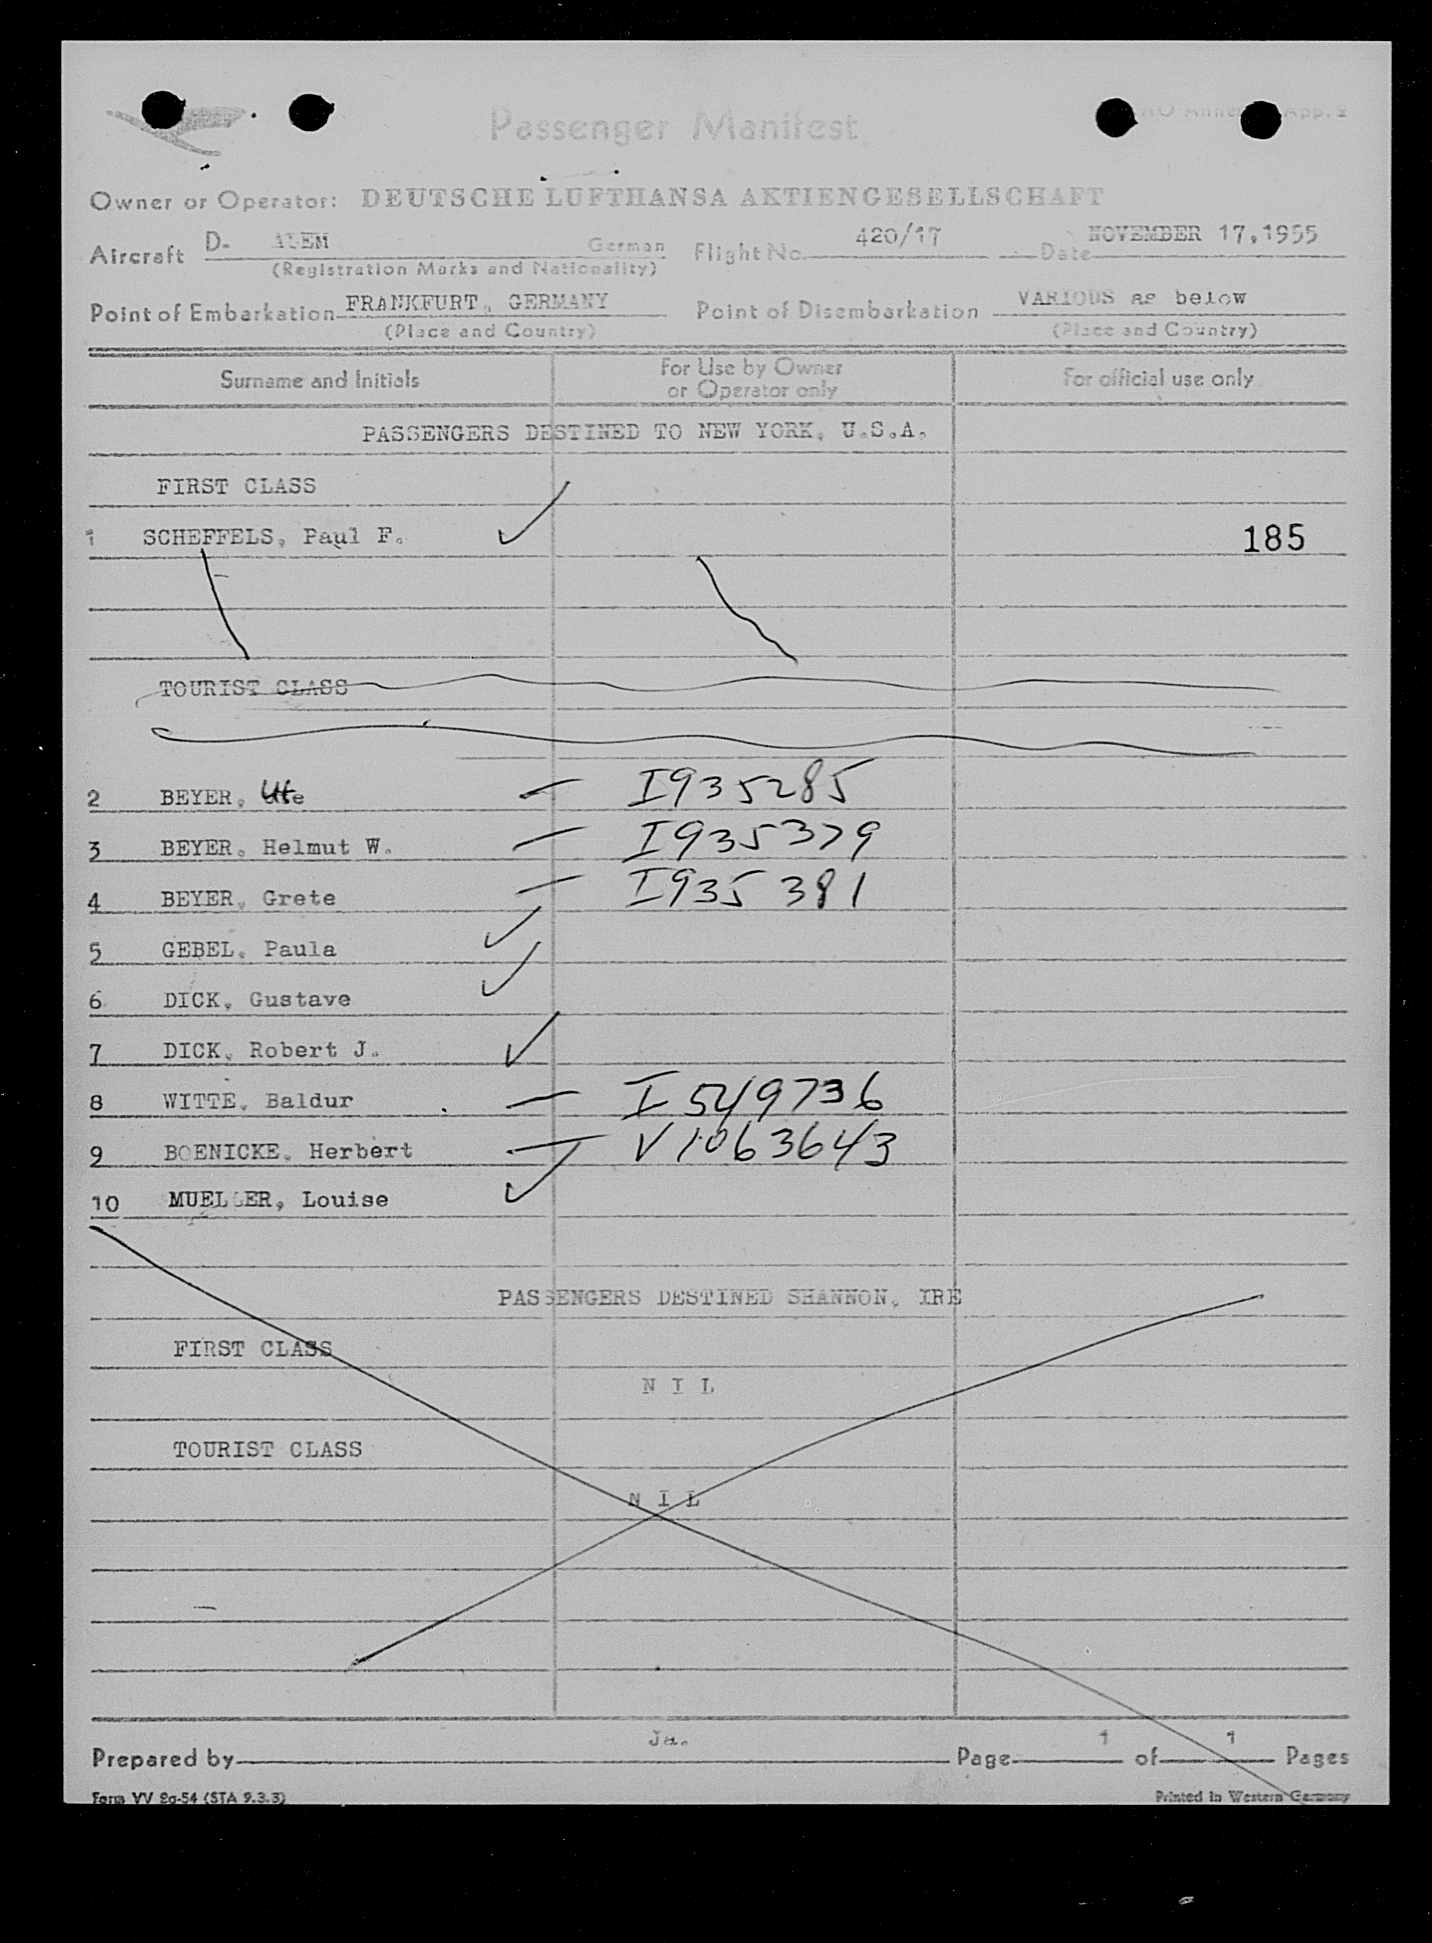 Passenger Manifest
App. 2
Owner or Operator: DEUTSCHE LUFTHANSA AKTIENGESELLSCHAFT
Aircraft D- ALEM German Flight No. 420/17 Date NOVEMBER 17,1955
(Registration Marks and Nationality)
Point of Embarkation FRANKFURT, GERMANY Point of Disembarkation VARIOUS as below
(Place and Country) (Place and Country)
Surname and Initials For Use by Owner or Operator only For official use only
PASSENGERS DESTINED TO NEW YORK, U.S.A.
FIRST CLASS
1 SCHEFFELS, Paul F. 185
TOURIST CLASS
2 BEYER, Ute I935285
3 BEYER, Helmut W. I935379
4 BEYER, Grete I935381
5 GEBEL, Paula
6 DICK, Gustave
7 DICK, Robert J.
8 WITTE, Baldur I549736
9 BOENICKE, Herbert V1063643
10 MUELLER, Louise
PASSENGERS DESTINED SHANNON, IRE
FIRST CLASS
N I L
TOURIST CLASS
N I L
Prepared by Ja. Page 1 of 1 Pages
Form VV 8a-54 (STA 9.3.3) Printed in Western Germany